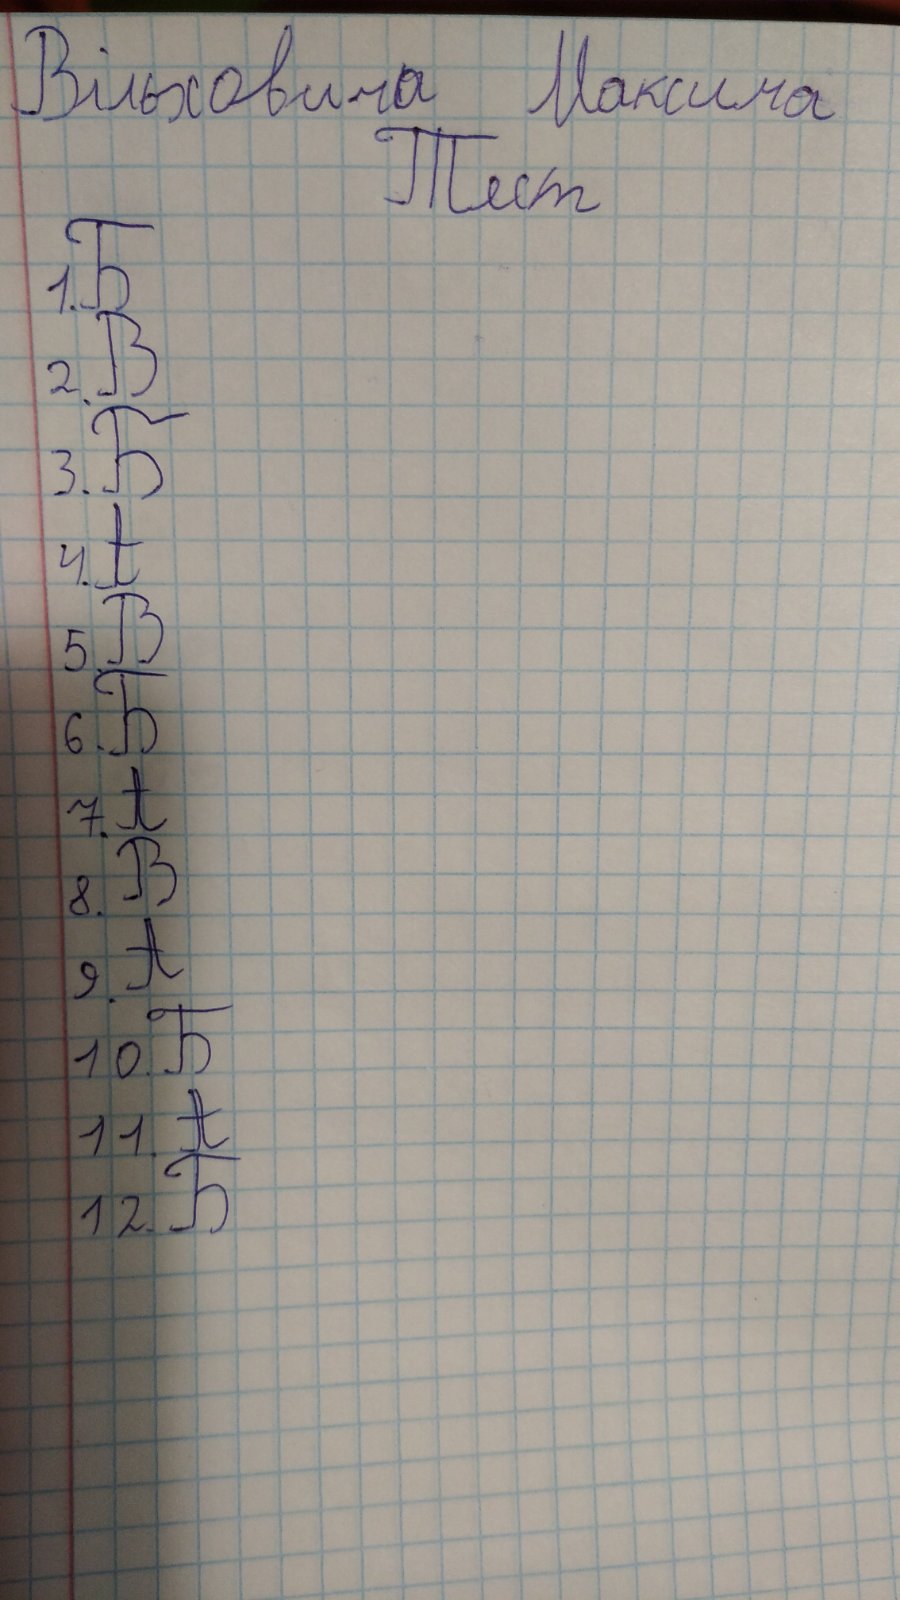 Вільховича Максима
Тест
1. Б
2. В
3. Б
4. А
5. В
6. Б
7. А
8. В
9. А
10. Б
11. А
12. Б